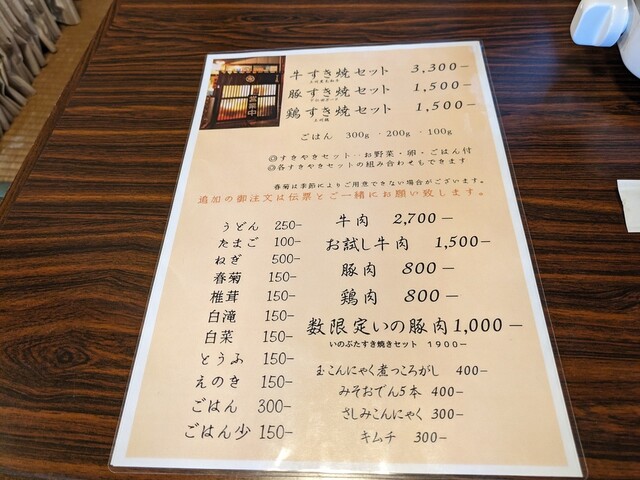 牛すき焼セット 3,300−
豚すき焼セット 1,500−
鶏すき焼セット 1,500−
ごはん 300g ・200g ・100g
◎すきやきセット‥お野菜・卵・ごはん付
◎各すきやきセットの組み合わせもできます
春菊は季節によりご用意できない場合がございます。
追加の御注文は伝票とご一緒にお願い致します。
うどん 250−
たまご 100−
ねぎ 500−
春菊 150−
椎茸 150−
白滝 150−
白菜 150−
とうふ 150−
えのき 150−
ごはん 300−
ごはん少 150−
牛肉 2,700−
お試し牛肉 1,500−
豚肉 800−
鶏肉 800−
数限定いの豚肉 1,000−
いのぶたすき焼きセット 1900−
玉こんにゃく煮っころがし 400−
みそおでん5本 400−
さしみこんにゃく 300−
キムチ 300−